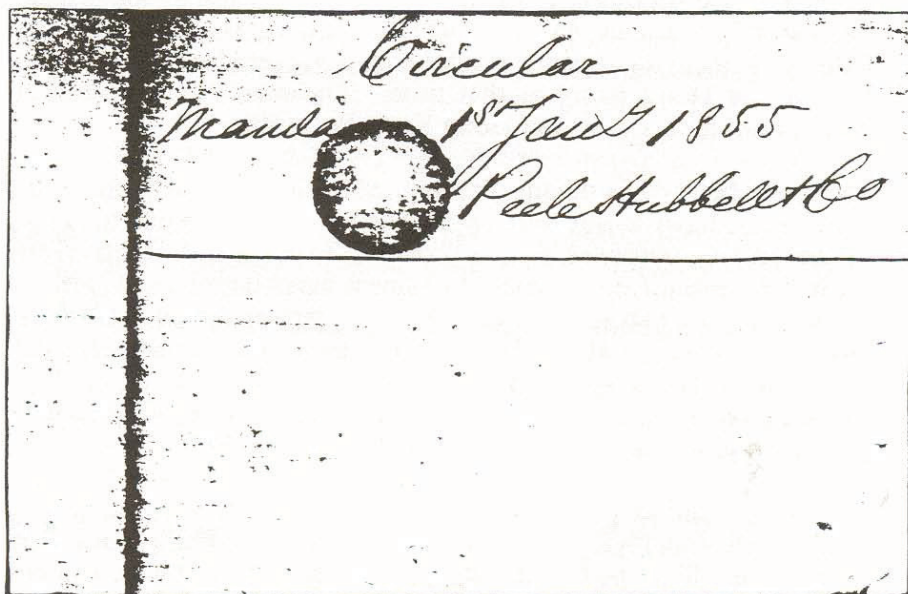 Circular
Manila 1st Jany 1855
Peele Hubbell & Co